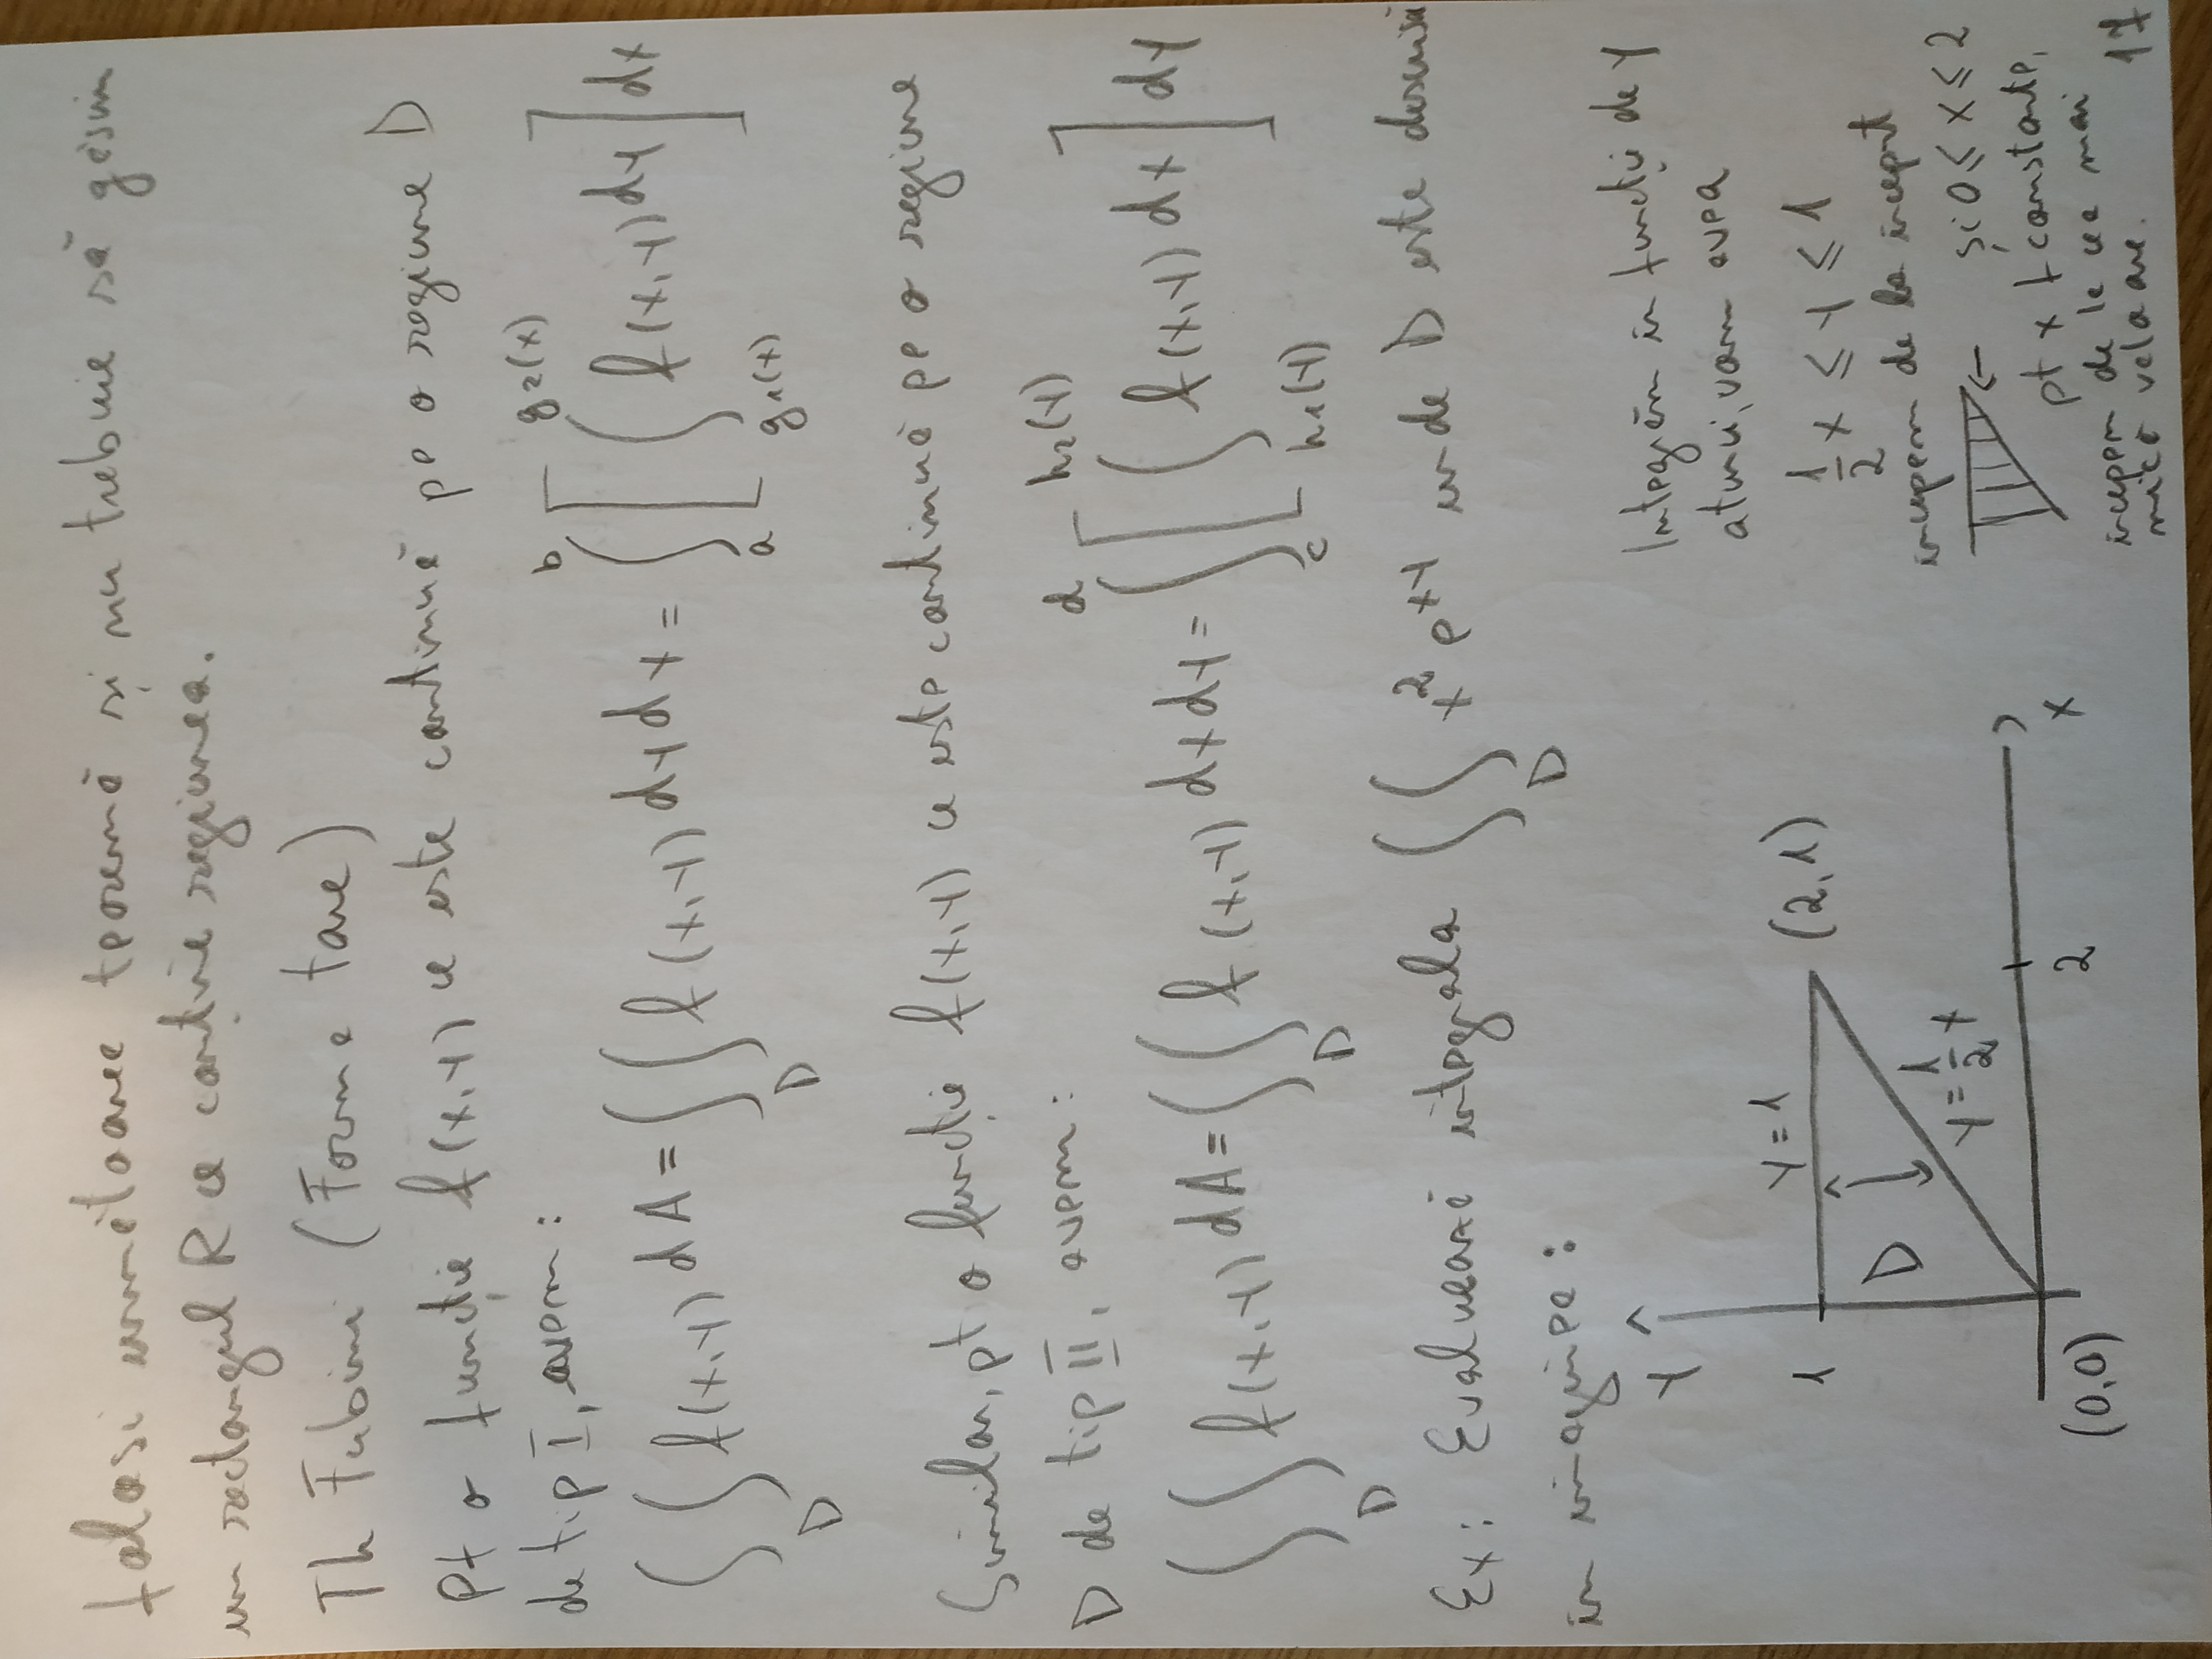 folosi următoarea teoremă și nu trebuie să găsim
un rectangul R ce conține regiunea.
Th Fubini (Forma tare)
Pt o funcție f(x,y) ce este continuă pe o regiune D
de tip I, avem:
∫∫_D f(x,y) dA = ∫∫_D f(x,y) dy dx = ∫_a^b [ ∫_{g1(x)}^{g2(x)} f(x,y) dy ] dx
Similar, pt o funcție f(x,y) ce este continuă pe o regiune
D de tip II, avem:
∫∫_D f(x,y) dA = ∫∫_D f(x,y) dx dy = ∫_c^d [ ∫_{h1(y)}^{h2(y)} f(x,y) dx ] dy
Ex: Evaluează integrala ∫∫_D x² e^{xy} unde D este descrisă
in imaginea:
Y
y=1
1
(2,1)
D
y = 1/2 x
(0,0)
2
x
Integrăm in funcție de y
atunci, vom avea
1/2 x ≤ y ≤ 1
incepem de la inceput
și 0 ≤ x ≤ 2
pt x constante,
incepem de la cea mai
mică valoare.
17